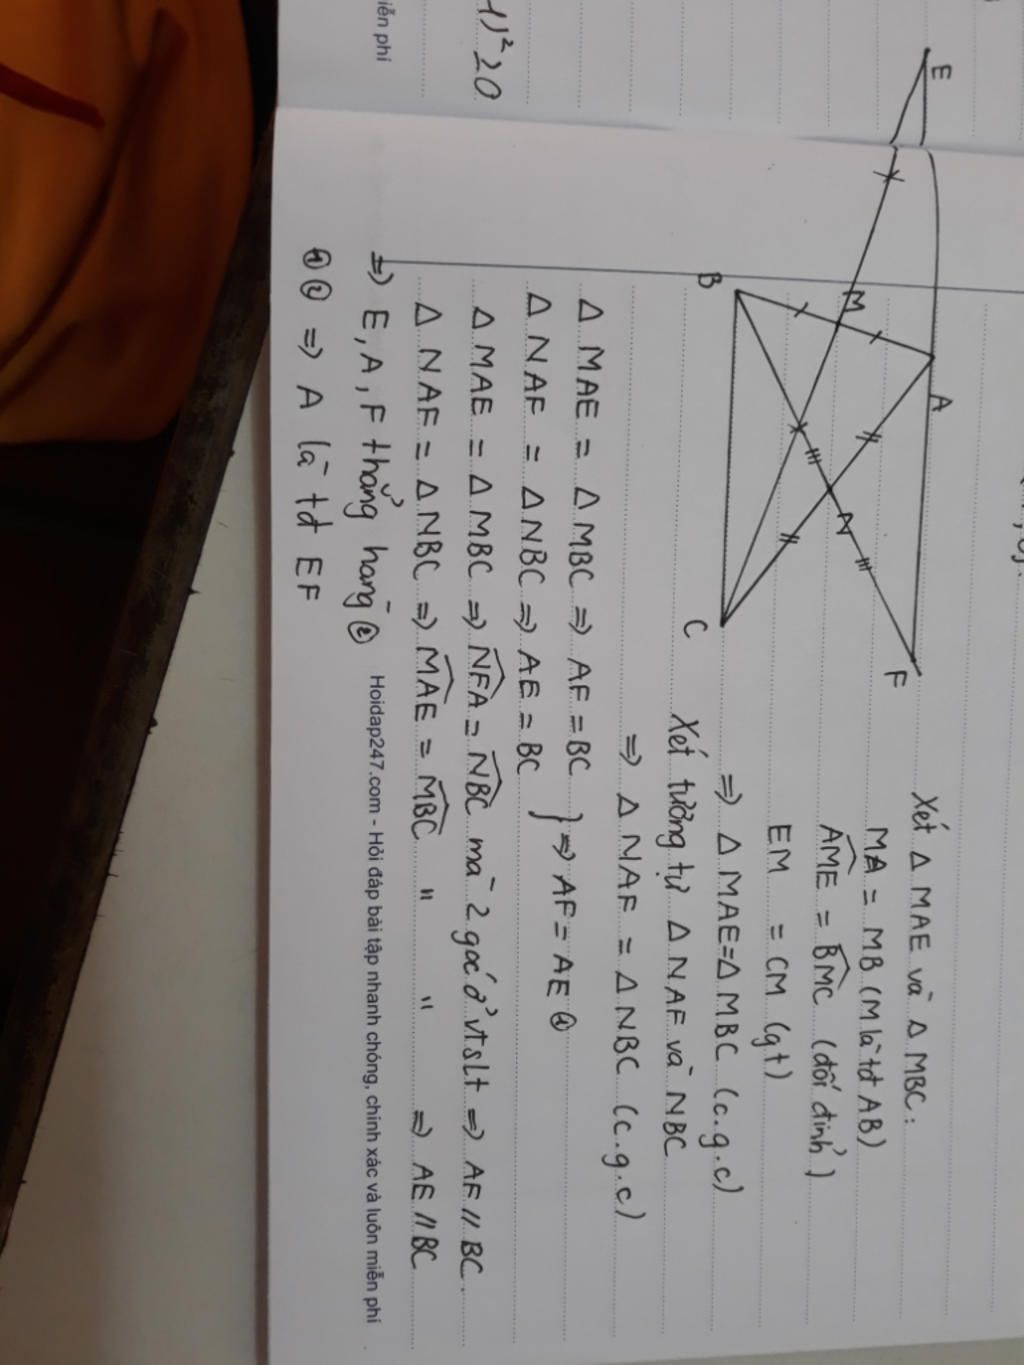 E
A
F
M
N
B
C
Xét △ MAE và △ MBC:
MA = MB (M là tđ AB)
AME = BMC (đối đỉnh)
EM = CM (gt)
⇒ △ MAE = △ MBC (c.g.c)
Xét tương tự △ NAF và NBC
⇒ △ NAF = △ NBC (c.g.c)
△ MAE = △ MBC ⇒ AF = BC
△ NAF = △ NBC ⇒ AE = BC } ⇒ AF = AE ①
△ MAE = △ MBC ⇒ NFA = NBC mà 2 góc ở vt slt ⇒ AF // BC.
△ NAF = △ NBC ⇒ MAE = MBC " " ⇒ AE // BC
⇒ E, A, F thẳng hàng ②
① ② ⇒ A là tđ EF
Hoidap247.com - Hỏi đáp bài tập nhanh chóng, chính xác và luôn miễn phí
iễn phí
1)² 20